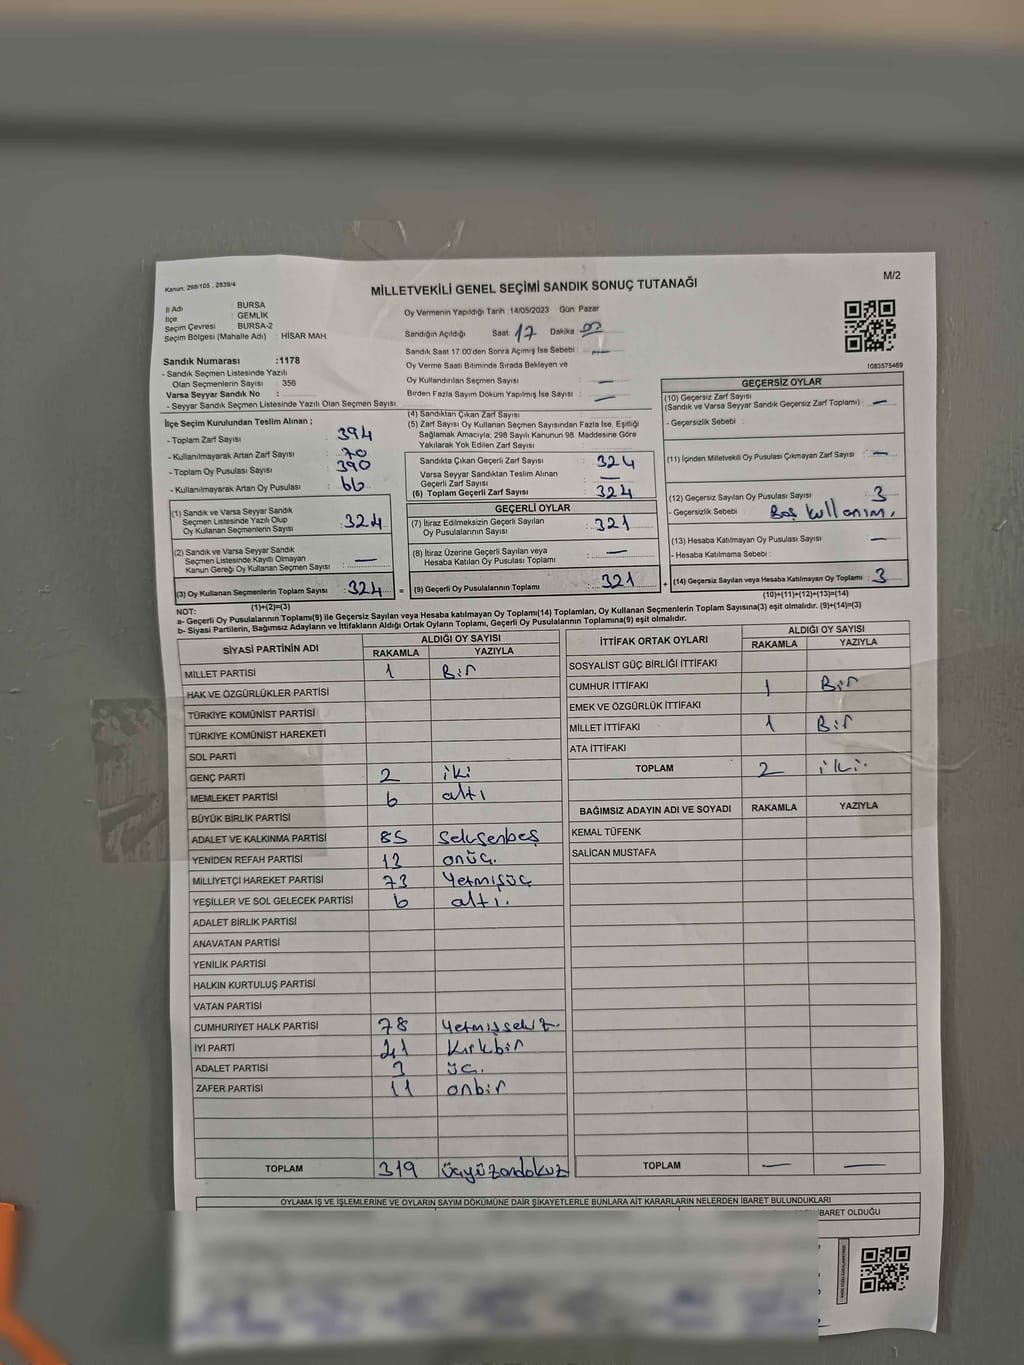 Kanun. 298/105 . 2839/4
MİLLETVEKİLİ GENEL SEÇİMİ SANDIK SONUÇ TUTANAĞI
M/2
İl Adı : BURSA
İlçe : GEMLİK
Seçim Çevresi : BURSA-2
Seçim Bölgesi (Mahalle Adı) : HİSAR MAH
Sandık Numarası :1178
- Sandık Seçmen Listesinde Yazılı
Olan Seçmenlerin Sayısı : 356
Varsa Seyyar Sandık No :
- Seyyar Sandık Seçmen Listesinde Yazılı Olan Seçmen Sayısı
Oy Vermenin Yapıldığı Tarih :14/05/2023 Gün: Pazar
Sandığın Açıldığı Saat 17 Dakika 00
Sandık Saat 17.00'den Sonra Açılmış İse Sebebi : —
Oy Verme Saati Bitiminde Sırada Bekleyen ve
Oy Kullandırılan Seçmen Sayısı : —
Birden Fazla Sayım Döküm Yapılmış İse Sayısı : —
1083575469
İlçe Seçim Kurulundan Teslim Alınan ;
- Toplam Zarf Sayısı : 394
- Kullanılmayarak Artan Zarf Sayısı : 70
- Toplam Oy Pusulası Sayısı : 390
- Kullanılmayarak Artan Oy Pusulası : 66
(1) Sandık ve Varsa Seyyar Sandık
Seçmen Listesinde Yazılı Olup
Oy Kullanan Seçmenlerin Sayısı : 324
(2) Sandık ve Varsa Seyyar Sandık
Seçmen Listesinde Kayıtlı Olmayan
Kanun Gereği Oy Kullanan Seçmen Sayısı : —
(3) Oy Kullanan Seçmenlerin Toplam Sayısı : 324
(1)+(2)=(3)
(4) Sandıktan Çıkan Zarf Sayısı :
(5) Zarf Sayısı Oy Kullanan Seçmen Sayısından Fazla İse, Eşitliği
Sağlamak Amacıyla; 298 Sayılı Kanunun 98. Maddesine Göre
Yakılarak Yok Edilen Zarf Sayısı :
Sandıkta Çıkan Geçerli Zarf Sayısı : 324
Varsa Seyyar Sandıktan Teslim Alınan
Geçerli Zarf Sayısı : —
(6) Toplam Geçerli Zarf Sayısı : 324
GEÇERLİ OYLAR
(7) İtiraz Edilmeksizin Geçerli Sayılan
Oy Pusulalarının Sayısı : 321
(8) İtiraz Üzerine Geçerli Sayılan veya
Hesaba Katılan Oy Pusulası Toplamı : —
= (9) Geçerli Oy Pusulalarının Toplamı : 321 +
GEÇERSİZ OYLAR
(10) Geçersiz Zarf Sayısı
(Sandık ve Varsa Seyyar Sandık Geçersiz Zarf Toplamı) : —
- Geçersizlik Sebebi :
(11) İçinden Milletvekili Oy Pusulası Çıkmayan Zarf Sayısı : —
(12) Geçersiz Sayılan Oy Pusulası Sayısı : 3
- Geçersizlik Sebebi : Boş kullanım.
(13) Hesaba Katılmayan Oy Pusulası Sayısı : —
- Hesaba Katılmama Sebebi :
(14) Geçersiz Sayılan veya Hesaba Katılmayan Oy Toplamı : 3
(10)+(11)+(12)+(13)=(14)
NOT:
a- Geçerli Oy Pusulalarının Toplamı(9) ile Geçersiz Sayılan veya Hesaba katılmayan Oy Toplamı(14) Toplamları, Oy Kullanan Seçmenlerin Toplam Sayısına(3) eşit olmalıdır. (9)+(14)=(3)
b- Siyasi Partilerin, Bağımsız Adayların ve İttifakların Aldığı Ortak Oyların Toplamı, Geçerli Oy Pusulalarının Toplamına(9) eşit olmalıdır.
SİYASİ PARTİNİN ADI ALDIĞI OY SAYISI
RAKAMLA YAZIYLA
MİLLET PARTİSİ 1 Bir
HAK VE ÖZGÜRLÜKLER PARTİSİ
TÜRKİYE KOMÜNİST PARTİSİ
TÜRKİYE KOMÜNİST HAREKETİ
SOL PARTİ
GENÇ PARTİ 2 iki
MEMLEKET PARTİSİ 6 altı
BÜYÜK BİRLİK PARTİSİ
ADALET VE KALKINMA PARTİSİ 85 Seksenbeş
YENİDEN REFAH PARTİSİ 13 onüç.
MİLLİYETÇİ HAREKET PARTİSİ 73 Yetmişüç
YEŞİLLER VE SOL GELECEK PARTİSİ 6 altı.
ADALET BİRLİK PARTİSİ
ANAVATAN PARTİSİ
YENİLİK PARTİSİ
HALKIN KURTULUŞ PARTİSİ
VATAN PARTİSİ
CUMHURİYET HALK PARTİSİ 78 Yetmişsekiz
İYİ PARTİ 41 Kırkbir
ADALET PARTİSİ 3 üç.
ZAFER PARTİSİ 11 onbir
TOPLAM 319 üçyüzondokuz
İTTİFAK ORTAK OYLARI ALDIĞI OY SAYISI
RAKAMLA YAZIYLA
SOSYALİST GÜÇ BİRLİĞİ İTTİFAKI
CUMHUR İTTİFAKI 1 Bir
EMEK VE ÖZGÜRLÜK İTTİFAKI
MİLLET İTTİFAKI 1 Bir
ATA İTTİFAKI
TOPLAM 2 iki.
BAĞIMSIZ ADAYIN ADI VE SOYADI RAKAMLA YAZIYLA
KEMAL TÜFENK
SALİCAN MUSTAFA
TOPLAM — —
OYLAMA İŞ VE İŞLEMLERİNE VE OYLARIN SAYIM DÖKÜMÜNE DAİR ŞİKAYETLERLE BUNLARA AİT KARARLARIN NELERDEN İBARET BULUNDUKLARI
İBARET OLDUĞU